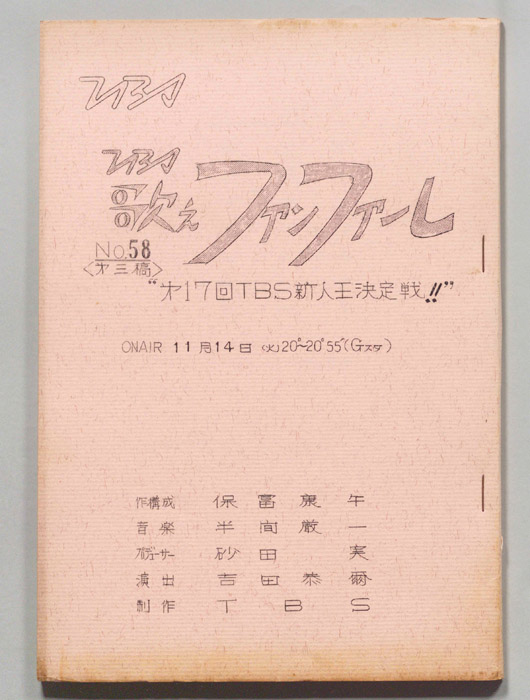 TBS
TBS
歌え ファンファーレ
No.58
<才三稿>
“才17回TBS新人王決定戦!!”
ONAIR 11月14日 (火)20°~20°55′(Gスタ)
作構成 保富康午
音楽 半間厳一
プロデューサー 砂田実
演出 吉田恭爾
制作 TBS